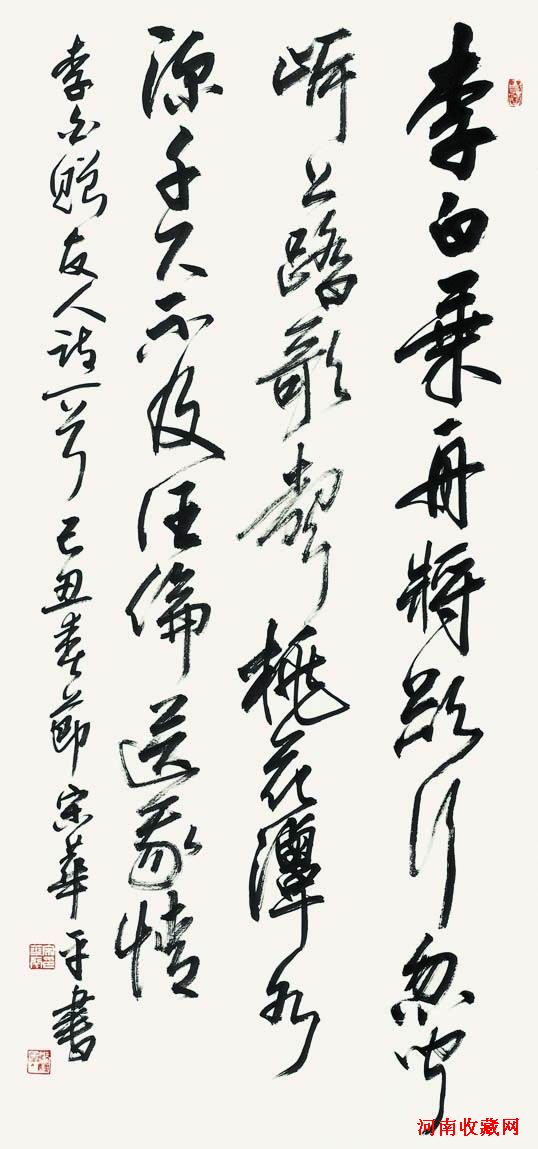 李白乘舟将欲行忽闻
岸上踏歌声桃花潭水
深千尺不及汪倫送我情
李白赠友人诗一首 己丑春节 宋華平書
河南收藏网